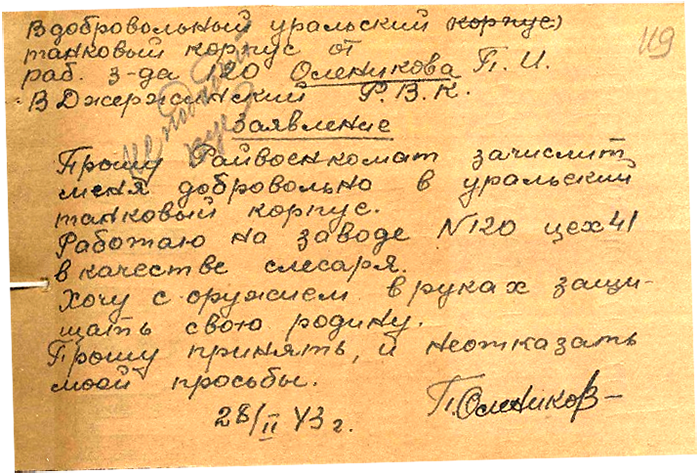 В добровольный уральский корпус)
119
танковый корпус от
раб. з-да 120 Оленикова П. И.
В Джержинский Р.В.К.
Заявление
Прошу Райвоенкомат зачислить
меня добровольно в уральский
танковый корпус.
Работаю на заводе N120 цех 41
в качестве слесаря.
Хочу с оружием в руках защи-
щать свою родину.
Прошу принять, и неотказать
моей просьбы.
28/II 43 г. П.Олеников